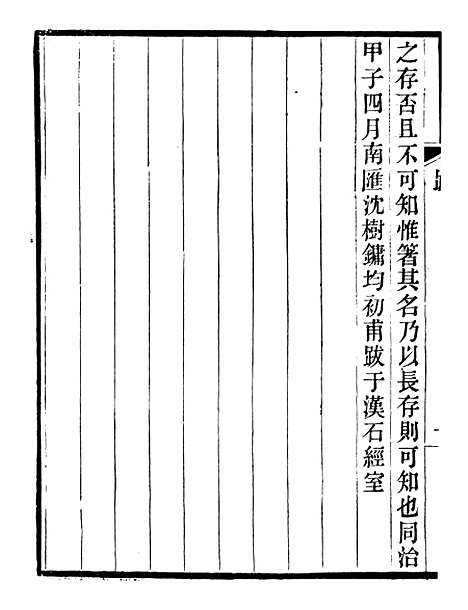 之存否且不可知惟箸其名乃以長存則可知也同治
甲子四月南匯沈樹鏞均初甫跋于漢石經室